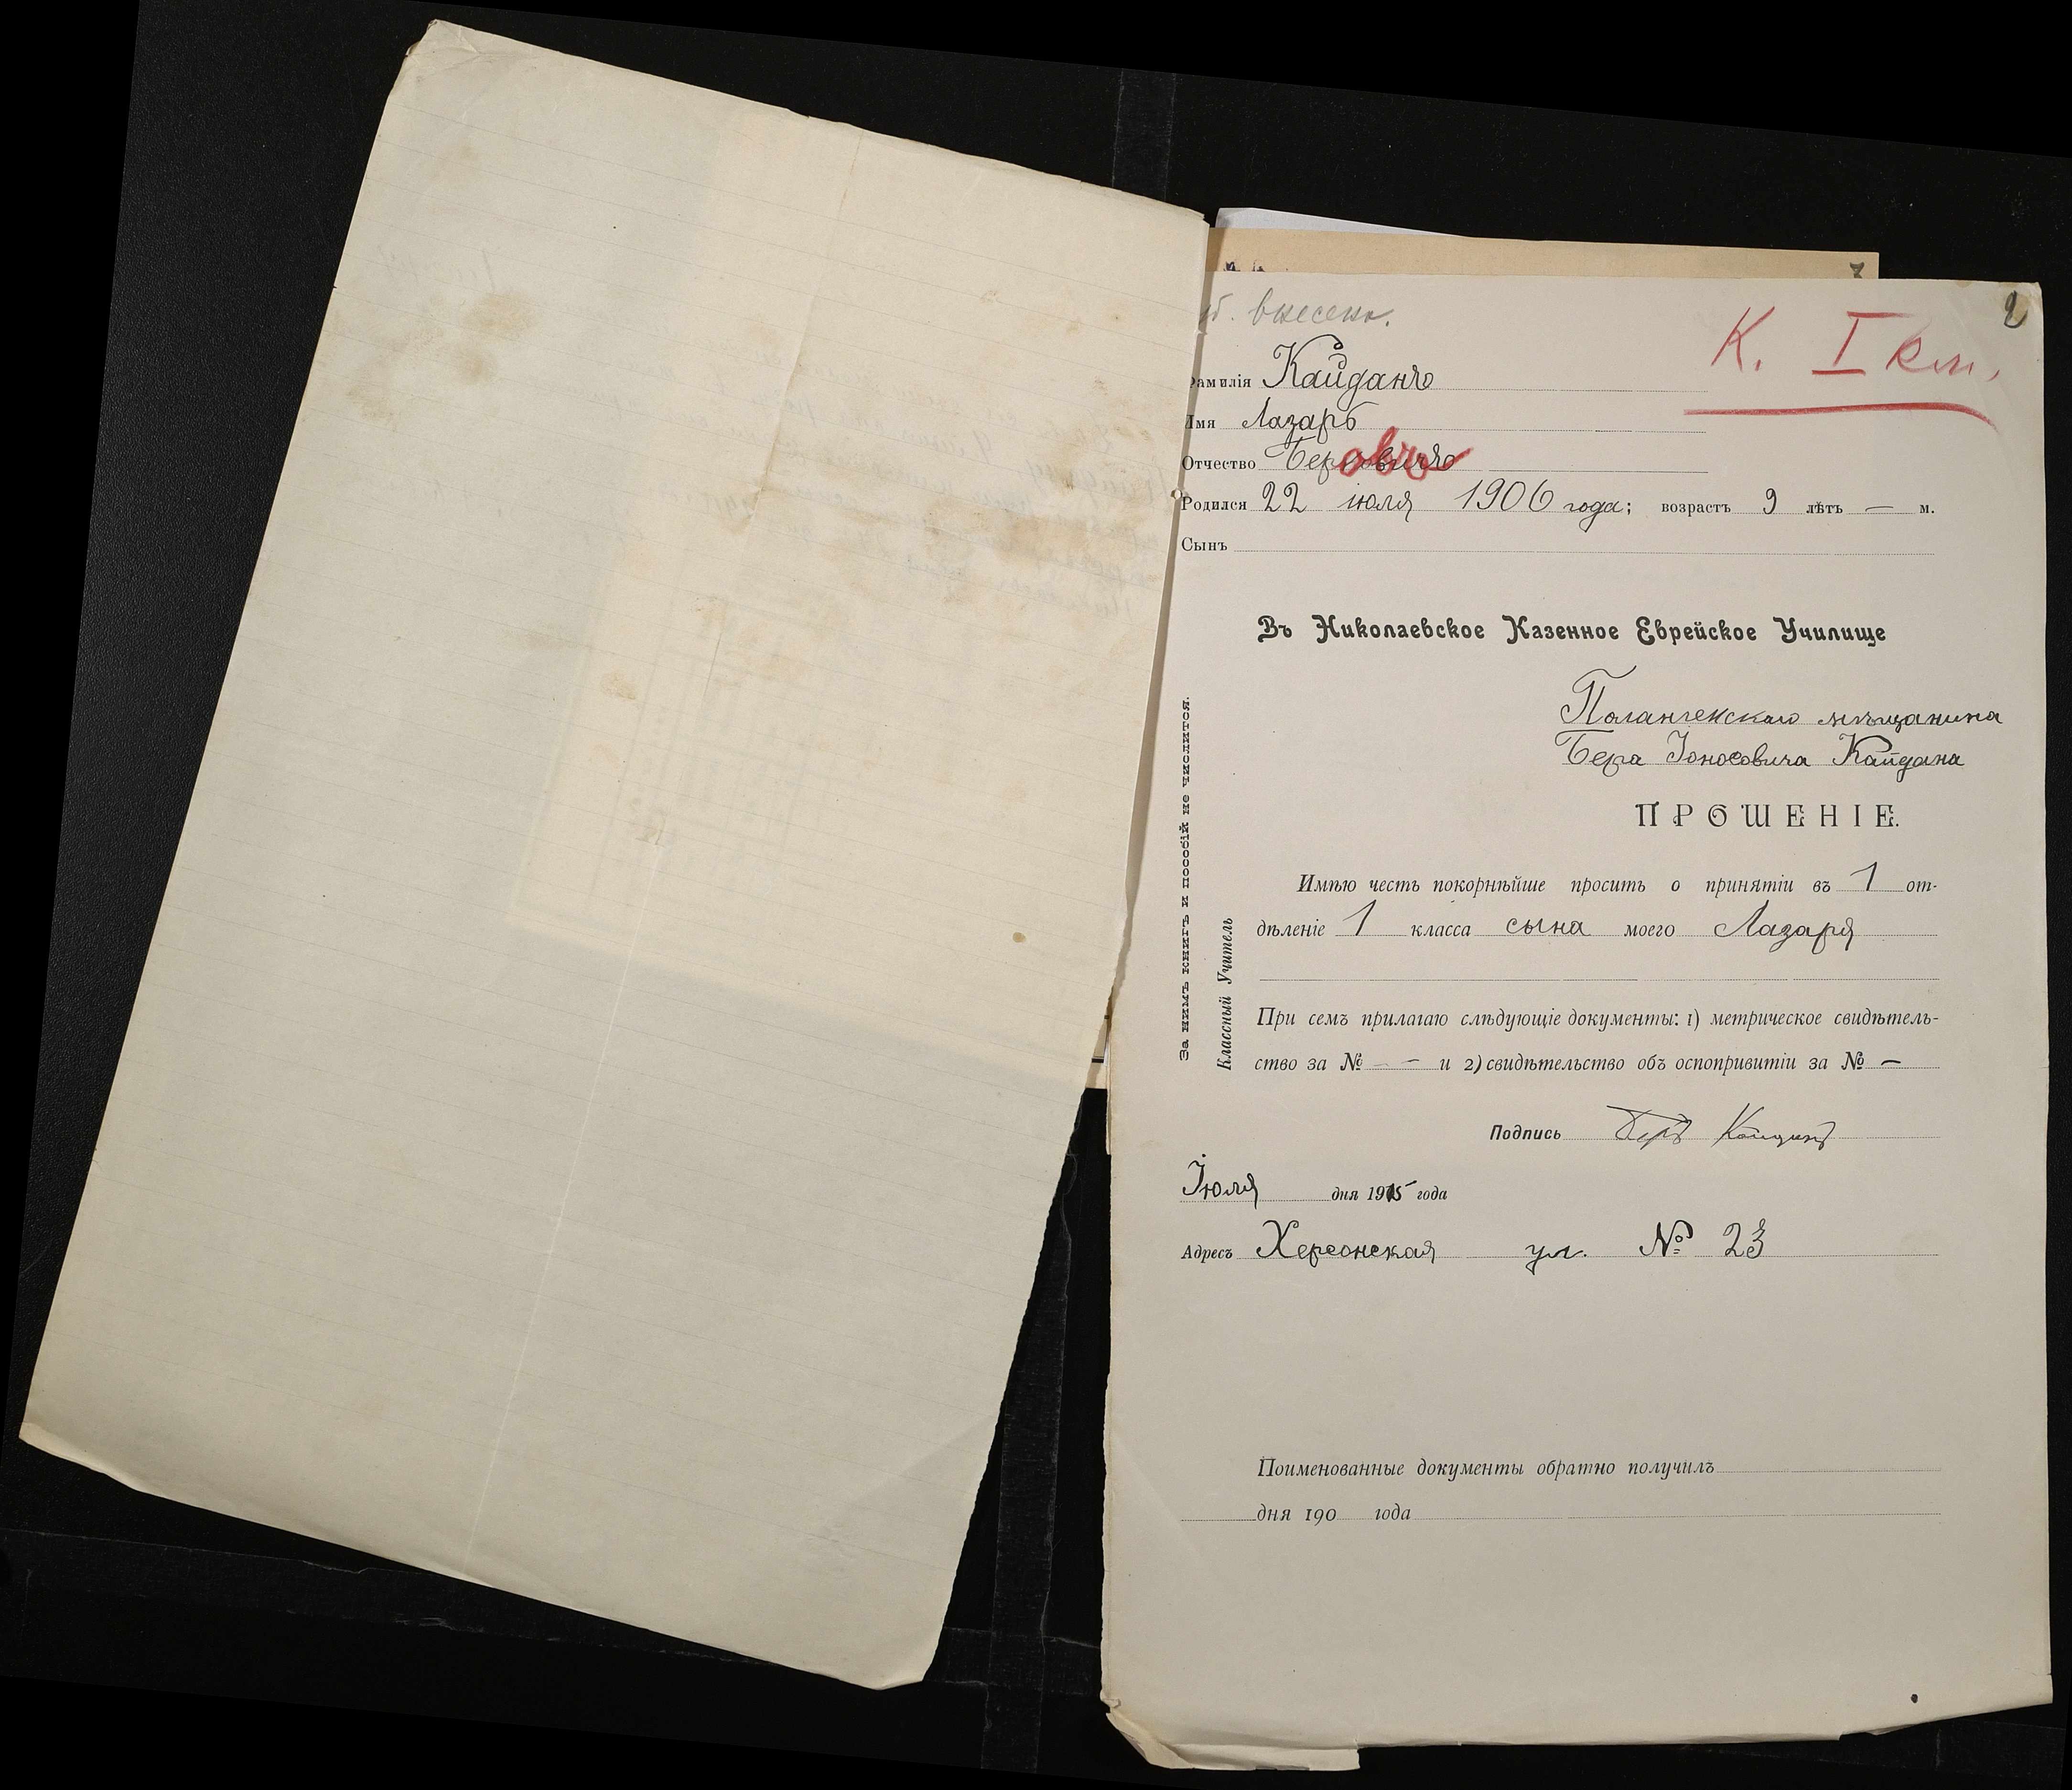 2
К. I кл.
внесено.
Фамилія Кайданъ
Имя Лазарь
Отчество Беровичъ овъ
Родился 22 іюля 1906 года; возрастъ 9 лѣтъ — м.
Сынъ
Въ Николаевское Казенное Еврейское Училище
Полангенскаго мѣщанина
Бера Іоносовича Кайдана
ПРОШЕНІЕ.
Имѣю честь покорнѣйше просить о принятіи въ 1 от-
дѣленіе 1 класса сына моего Лазаря
При семъ прилагаю слѣдующіе документы: 1) метрическое свидѣтель-
ство за № — — и 2) свидѣтельство объ оспопривитіи за № —
Подпись Беръ Кайданъ
Іюля дня 1915 года
Адресъ Херсонская ул. № 23
За нимъ книгъ и пособій не числится.
Классный Учитель
Поименованные документы обратно получилъ
дня 190 года